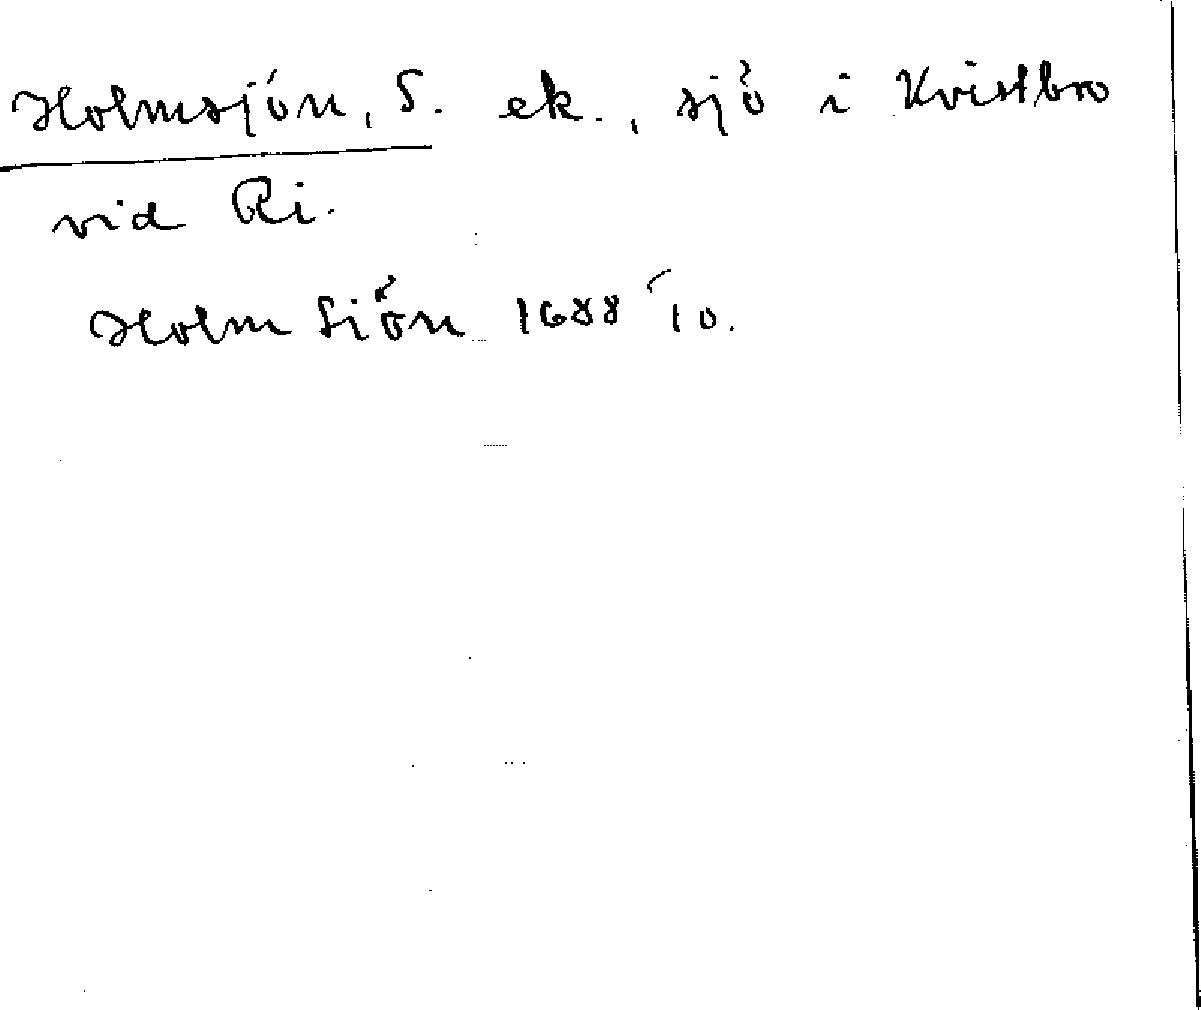 Holmsjön, S. ek., sjö i Kvistbro
vid Ri.
Holm Siön 1688 10.